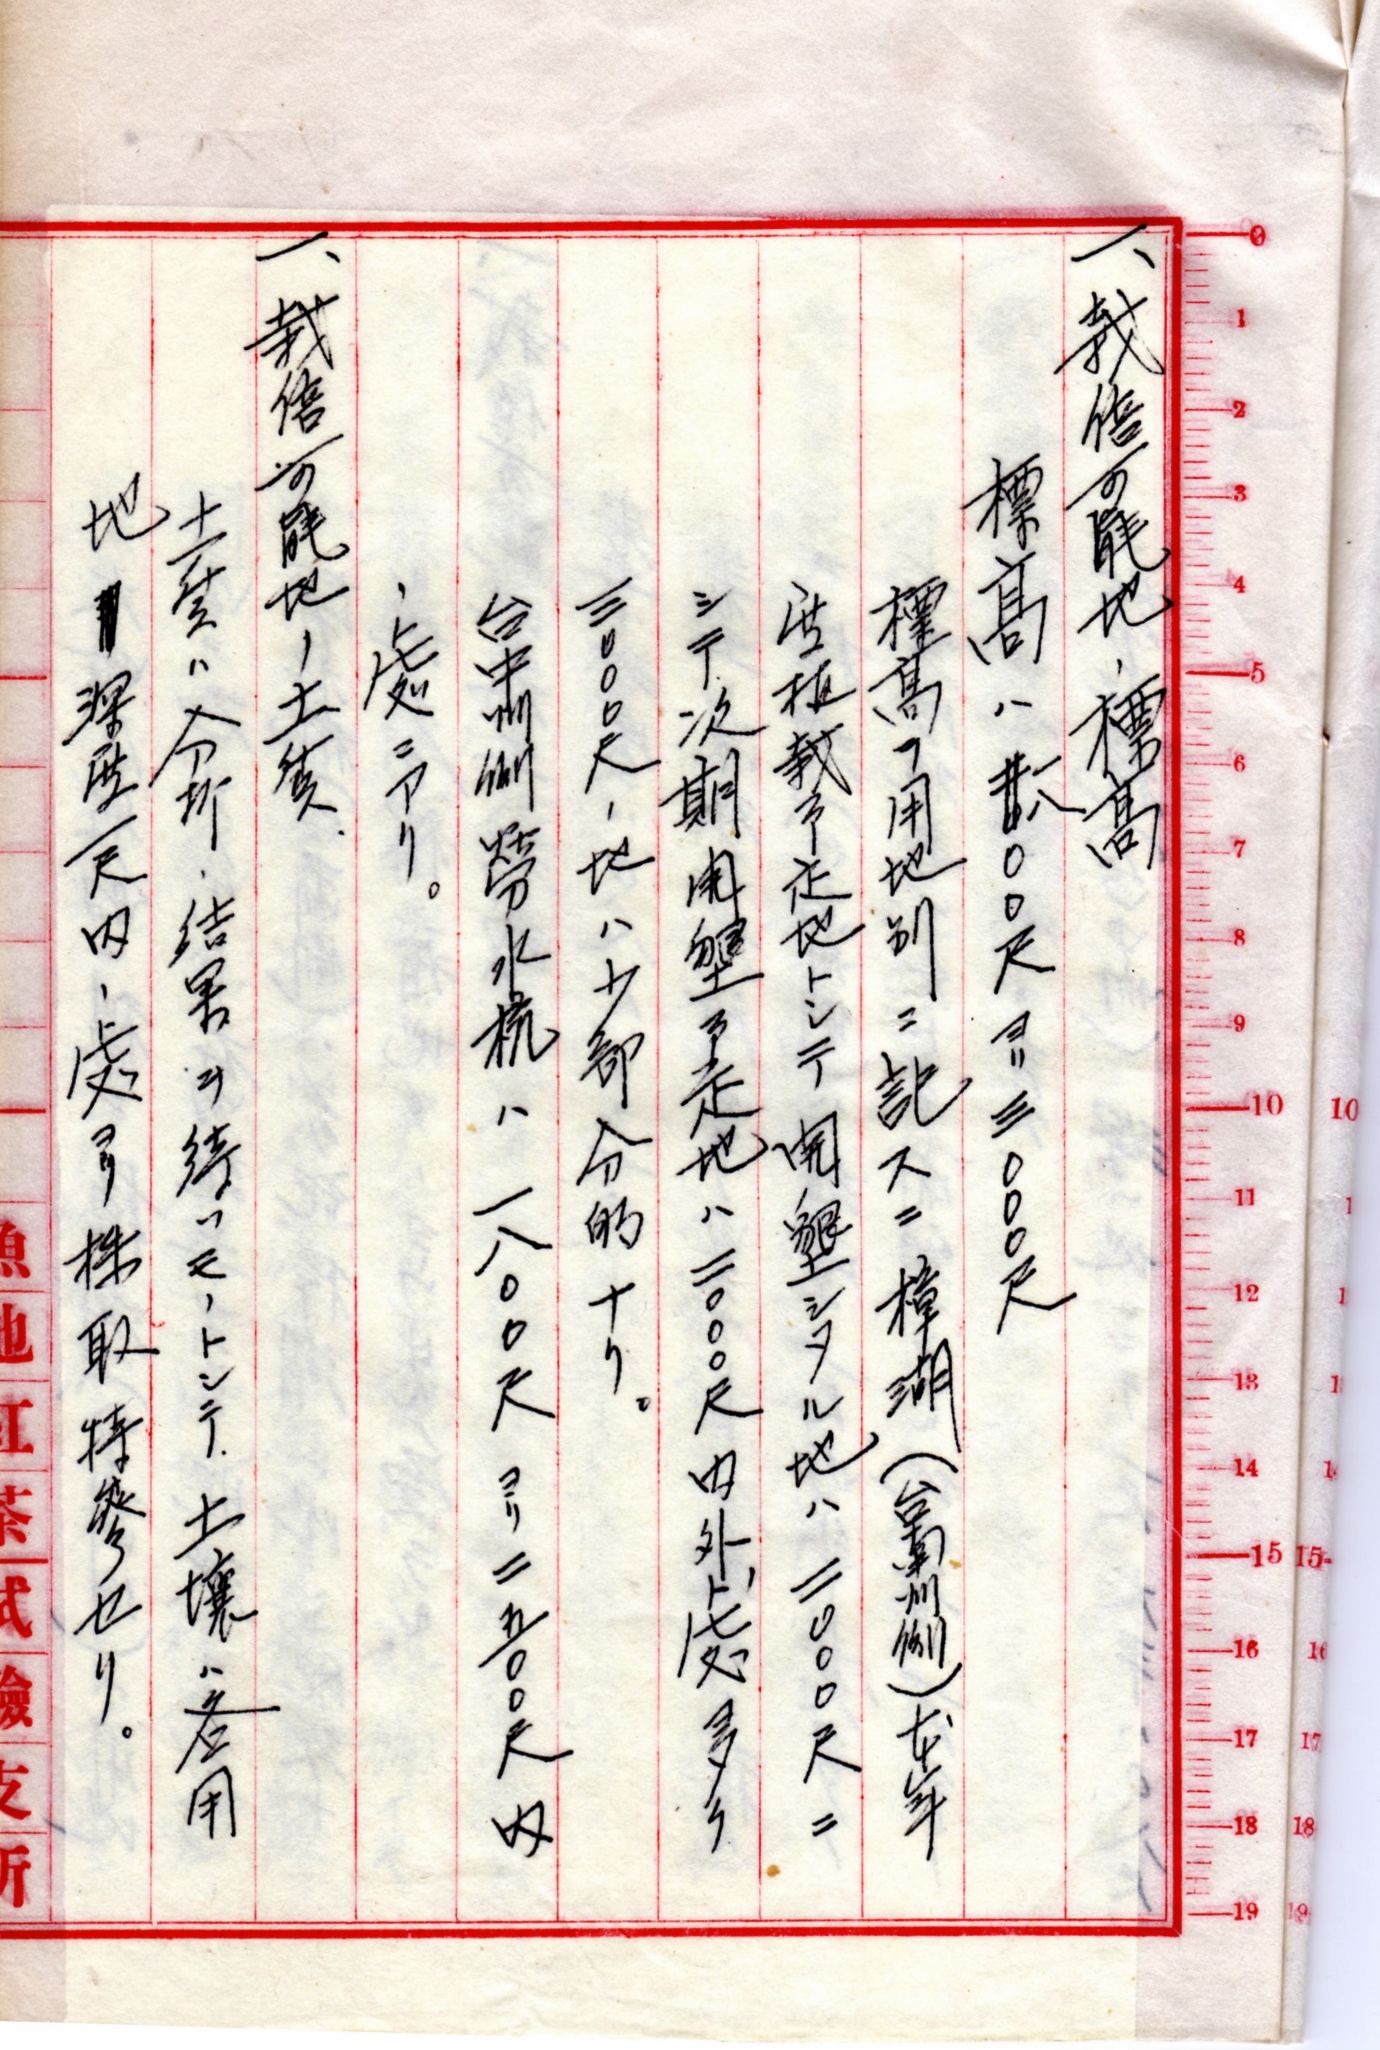 一、栽培可能地ノ標高
標高ハ一八〇〇尺ヨリ三〇〇〇尺
標高ヲ用地別ニ記スニ樟湖（台南州側）本年
度植栽予定地トシテ開墾シタル地ハ二〇〇〇尺ニ
シテ次期開墾予定地ハ二〇〇〇尺内外ノ處多ク
三〇〇〇尺ノ地ハ少部分的ナリ。
台中州側勞水梹ハ一八〇〇尺ヨリ二五〇〇尺内
ノ處ニアリ。
一、栽培可能地ノ土質
土質ハ分析ノ結果ヲ待ツモノトシテ土壤ハ各用
地深度一尺内ノ處ヨリ採取持參セリ。
魚池紅茶試驗支所
0
1
2
3
4
5
6
7
8
9
10
11
12
13
14
15
16
17
18
19
10
15
16
17
18
19